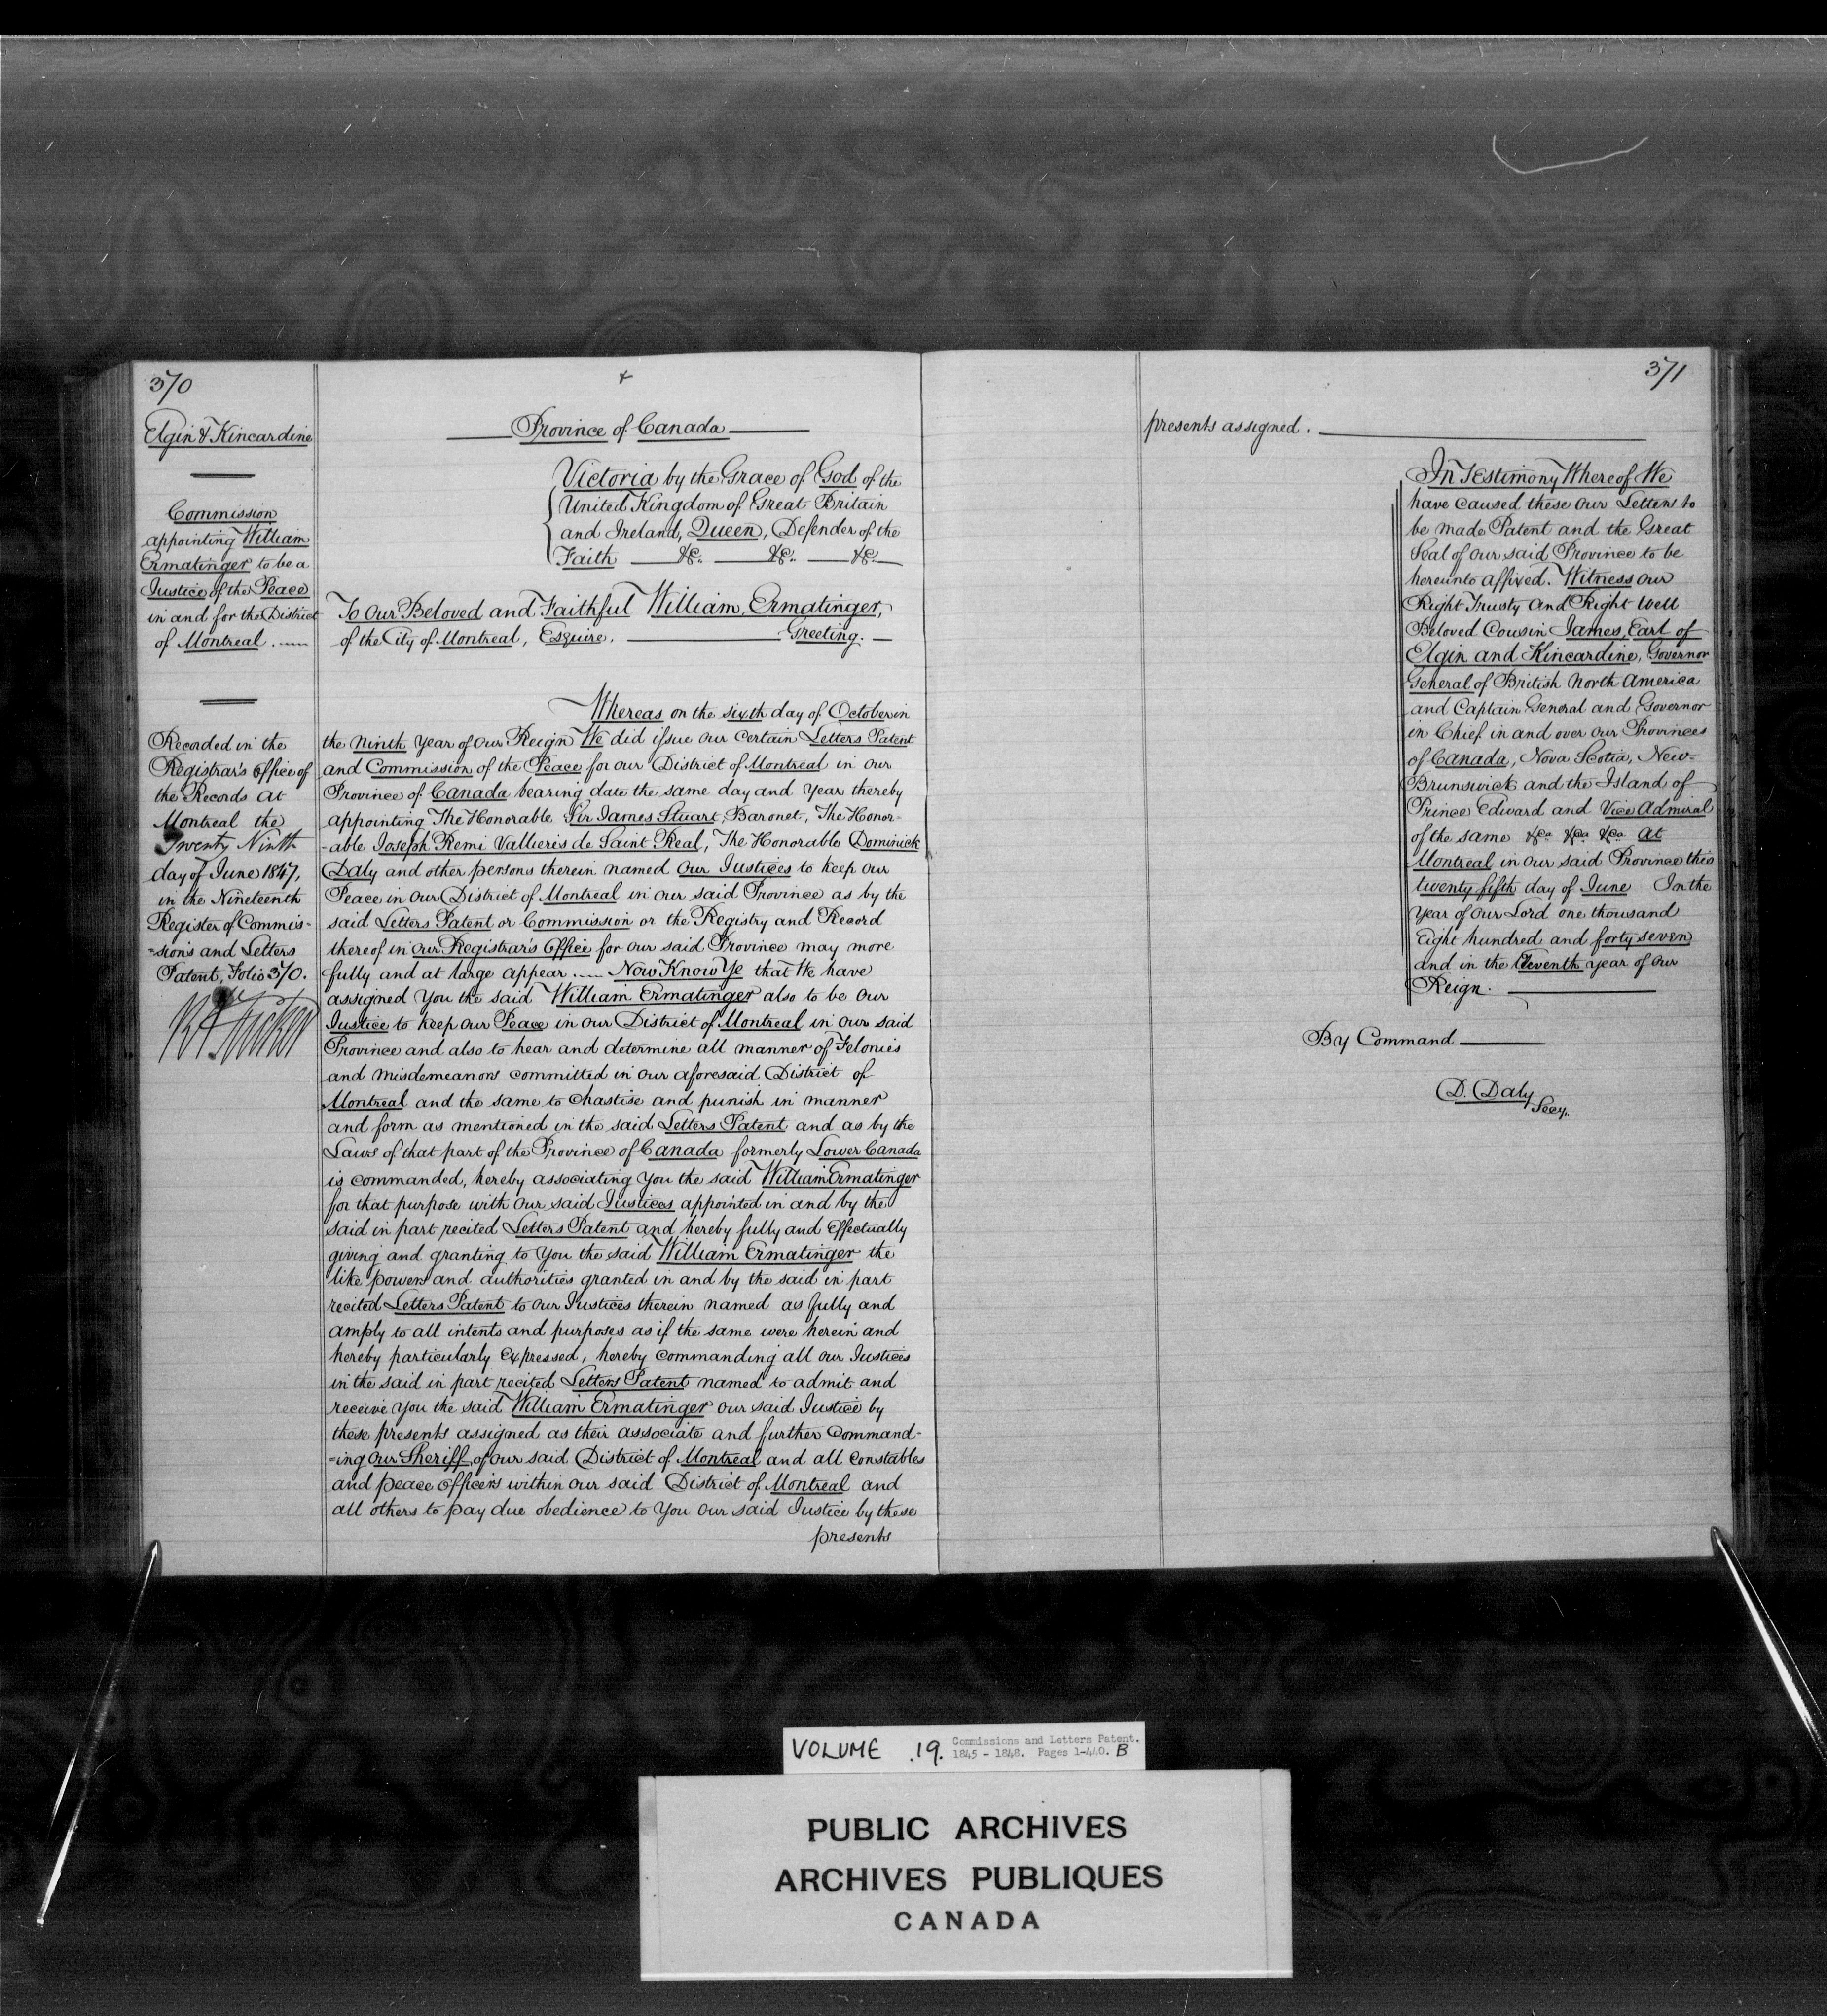 370
Elgin & Kincardine
Commission
appointing William
Ermatinger to be a
Justice of the Peace
in and for the District
of Montreal.
Recorded in the
Registrar's Office of
the Records at
Montreal the
Twenty Ninth
day of June 1847,
in the Nineteenth
Register of Commis-
-sions and Letters
Patent, Folio 370.
R A Tucker
Province of Canada
Victoria by the Grace of God of the
United Kingdom of Great Britain
and Ireland, Queen, Defender of the
Faith &c. &c. &c.
To Our Beloved and Faithful William Ermatinger,
of the City of Montreal, Esquire. Greeting.
Whereas on the sixth day of October in
the Ninth Year of Our Reign We did issue our certain Letters Patent
and Commission of the Peace for our District of Montreal in our
Province of Canada bearing date the same day and Year thereby
appointing The Honorable Sir James Stuart, Baronet, The Honor-
-able Joseph Remi Vallieres de Saint Real, The Honorable Dominick
Daly and other persons therein named Our Justices to keep our
Peace in Our District of Montreal in our said Province as by the
said Letters Patent or Commission or the Registry and Record
thereof in Our Registrar's Office for our said Province may more
fully and at large appear. Now Know Ye that We have
assigned You the said William Ermatinger also to be Our
Justice to keep our Peace in our District of Montreal in our said
Province and also to hear and determine all manner of Felonies
and Misdemeanors committed in our aforesaid District of
Montreal and the same to chastise and punish in manner
and form as mentioned in the said Letters Patent and as by the
Laws of that part of the Province of Canada formerly Lower Canada
is commanded, hereby associating You the said William Ermatinger
for that purpose with our said Justices appointed in and by the
said in part recited Letters Patent and hereby fully and effectually
giving and granting to You the said William Ermatinger the
like powers and authorities granted in and by the said in part
recited Letters Patent to our Justices therein named as fully and
amply to all intents and purposes as if the same were herein and
hereby particularly Expressed, hereby commanding all our Justices
in the said in part recited Letters Patent named to admit and
receive You the said William Ermatinger our said Justice by
these presents assigned as their associate and further Command-
-ing Our Sheriff of our said District of Montreal and all Constables
and peace Officers within our said District of Montreal and
all others to pay due obedience to You our said Justice by these
presents
371
presents assigned.
In Testimony Whereof We
have caused these Our Letters to
be made Patent and the Great
Seal of our said Province to be
hereunto affixed. Witness our
Right Trusty and Right Well
Beloved Cousin James, Earl of
Elgin and Kincardine, Governor
General of British North America
and Captain General and Governor
in Chief in and over our Provinces
of Canada, Nova Scotia, New-
Brunswick and the Island of
Prince Edward and Vice Admiral
of the same &ca &ca &ca At
Montreal in our said Province this
twenty fifth day of June In the
Year of Our Lord one thousand
Eight hundred and forty seven
and in the Eleventh year of our
Reign.
By Command
D. Daly
Secy.
VOLUME .19. Commissions and Letters Patent.
1845 - 1848. Pages 1-440. B
PUBLIC ARCHIVES
ARCHIVES PUBLIQUES
CANADA